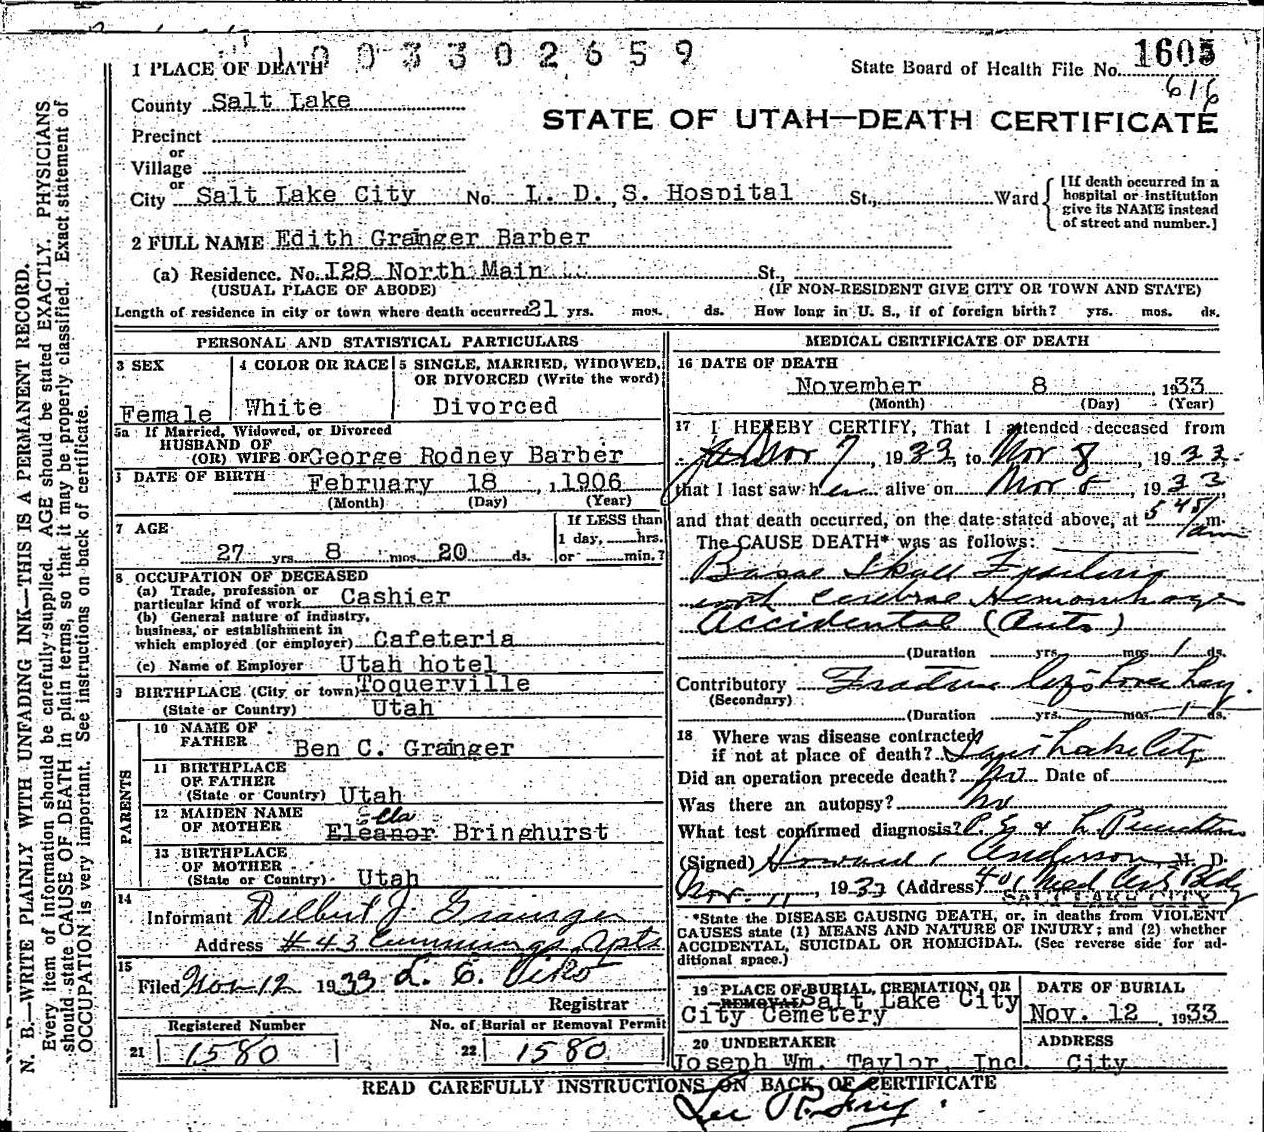 1003302659
1605
616
State Board of Health File No.
1 PLACE OF DEATH
County Salt Lake
STATE OF UTAH—DEATH CERTIFICATE
Precinct
or
Village
or
City Salt Lake City No. L. D. S. Hospital St., Ward
[If death occurred in a
hospital or institution
give its NAME instead
of street and number.]
2 FULL NAME Edith Granger Barber
(a) Residence. No. I28 North Main St.,
(USUAL PLACE OF ABODE) (IF NON-RESIDENT GIVE CITY OR TOWN AND STATE)
Length of residence in city or town where death occurred 21 yrs. mos. ds. How long in U. S., if of foreign birth? yrs. mos. ds.
PERSONAL AND STATISTICAL PARTICULARS
3 SEX
Female
4 COLOR OR RACE
White
5 SINGLE, MARRIED, WIDOWED,
OR DIVORCED (Write the word)
Divorced
5a If Married, Widowed, or Divorced
HUSBAND OF
(OR) WIFE OF George Rodney Barber
DATE OF BIRTH February 18, 1906
(Month) (Day) (Year)
7 AGE
27 yrs 8 mos 20 ds.
If LESS than
1 day, hrs.
or min.?
8 OCCUPATION OF DECEASED
(a) Trade, profession or
particular kind of work Cashier
(b) General nature of industry,
business, or establishment in
which employed (or employer) Cafeteria
(c) Name of Employer Utah hotel
9 BIRTHPLACE (City or town) Toquerville
(State or Country) Utah
PARENTS
10 NAME OF
FATHER Ben C. Granger
11 BIRTHPLACE
OF FATHER
(State or Country) Utah
12 MAIDEN NAME
OF MOTHER Eleanor Ella Bringhurst
13 BIRTHPLACE
OF MOTHER
(State or Country) Utah
14
Informant Delbert J. Granger
Address #43 Cummings Apts
15
Filed Nov 12 1933 L. E. Viko
Registrar
Registered Number
21 1580
No. of Burial or Removal Permit
22 1580
MEDICAL CERTIFICATE OF DEATH
16 DATE OF DEATH
November 8 1933
(Month) (Day) (Year)
17 I HEREBY CERTIFY, That I attended deceased from
Nov 7, 1933, to Nov 8, 1933,
that I last saw her alive on Nov 8, 1933
and that death occurred, on the date stated above, at 545 am m.
The CAUSE DEATH* was as follows:
Basal Skull Fracture
with Cerebral Hemorrhage
Accidental (Auto)
(Duration yrs. mos. 1 ds.
Contributory Fracture left lower leg.
(Secondary)
(Duration yrs. mos. 1 ds.
18 Where was disease contracted
if not at place of death? Salt Lake City
Did an operation precede death? No Date of
Was there an autopsy? No
What test confirmed diagnosis?
(Signed) Howard Anderson M. D.
Nov. 11, 1933 (Address) 401 Med Arts Bldg
SALT LAKE CITY
*State the DISEASE CAUSING DEATH, or, in deaths from VIOLENT
CAUSES state (1) MEANS AND NATURE OF INJURY; and (2) whether
ACCIDENTAL, SUICIDAL OR HOMICIDAL. (See reverse side for ad-
ditional space.)
19 PLACE OF BURIAL, CREMATION, OR
REMOVAL Salt Lake City
City Cemetery
DATE OF BURIAL
Nov. 12, 1933
20 UNDERTAKER
Joseph Wm. Taylor, Inc.
ADDRESS
City
READ CAREFULLY INSTRUCTIONS ON BACK OF CERTIFICATE
N. B.—WRITE PLAINLY WITH UNFADING INK—THIS IS A PERMANENT RECORD.
Every item of information should be carefully supplied. AGE should be stated EXACTLY. PHYSICIANS
should state CAUSE OF DEATH in plain terms, so that it may be properly classified. Exact statement of
OCCUPATION is very important. See instructions on back of certificate.